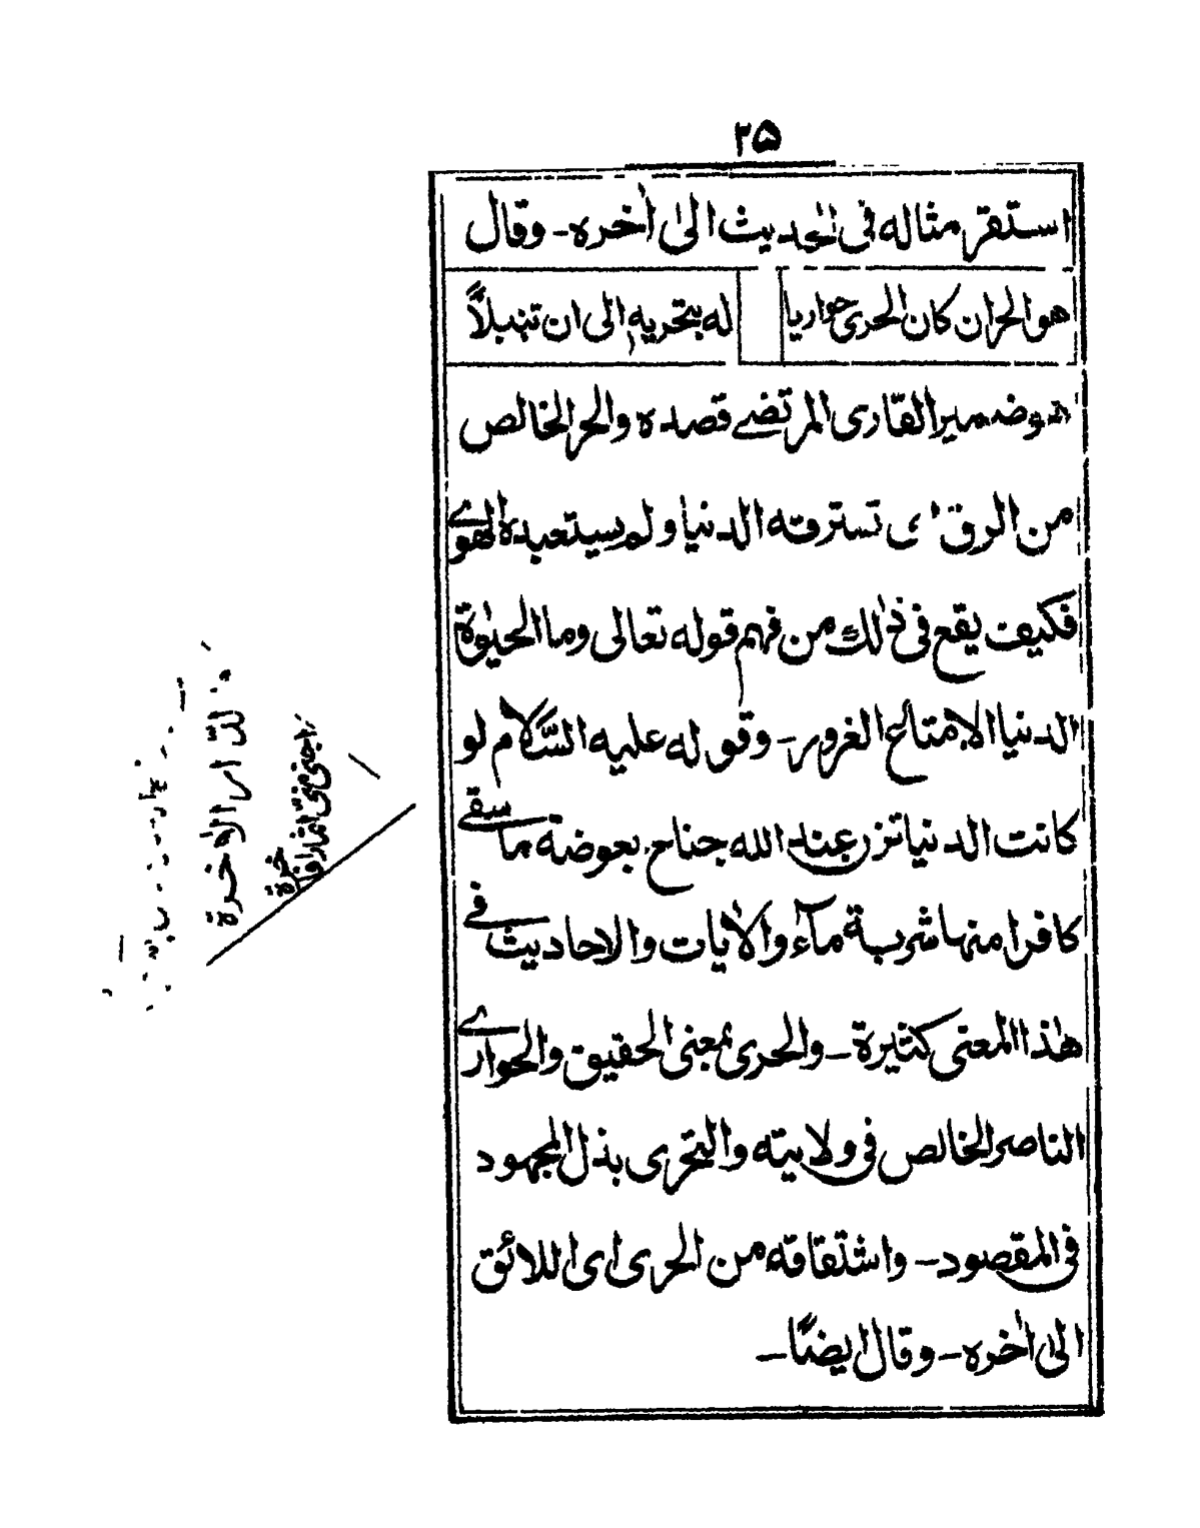 ٢٥
استقر مثاله فى الحديث الىٰ اٰخره ـ وقال
هو الحران كان الحرى حواريا له بتحريه الى ان تنبلاً
هو ضمير القارى المرتضے قصده والحر الخالص
من الرق اى تسترقه الدنيا ولم يستعبده الهوے
فكيف يقع فى ذٰلك من فهم قوله تعالى وما الحيٰوة
الدنيا الا متاع الغرور ـ وقوله عليه السَّلام لو
كانت الدنيا تزن عند الله جناح بعوضة ما سقے
كافرا منها شربة مآء والاٰيات والاحاديث فے
هٰذا المعنى كثيرة ـ والحرى بمعنى الحقيق والحوارے
الناصر الخالص فى ولايته والتحرى بذل المجهود
فى المقصود ـ واشتقاقه من الحرى اى اللائق
الىٰ اٰخره ـ وقال ايضًا ـ
الدّار الاٰخرة